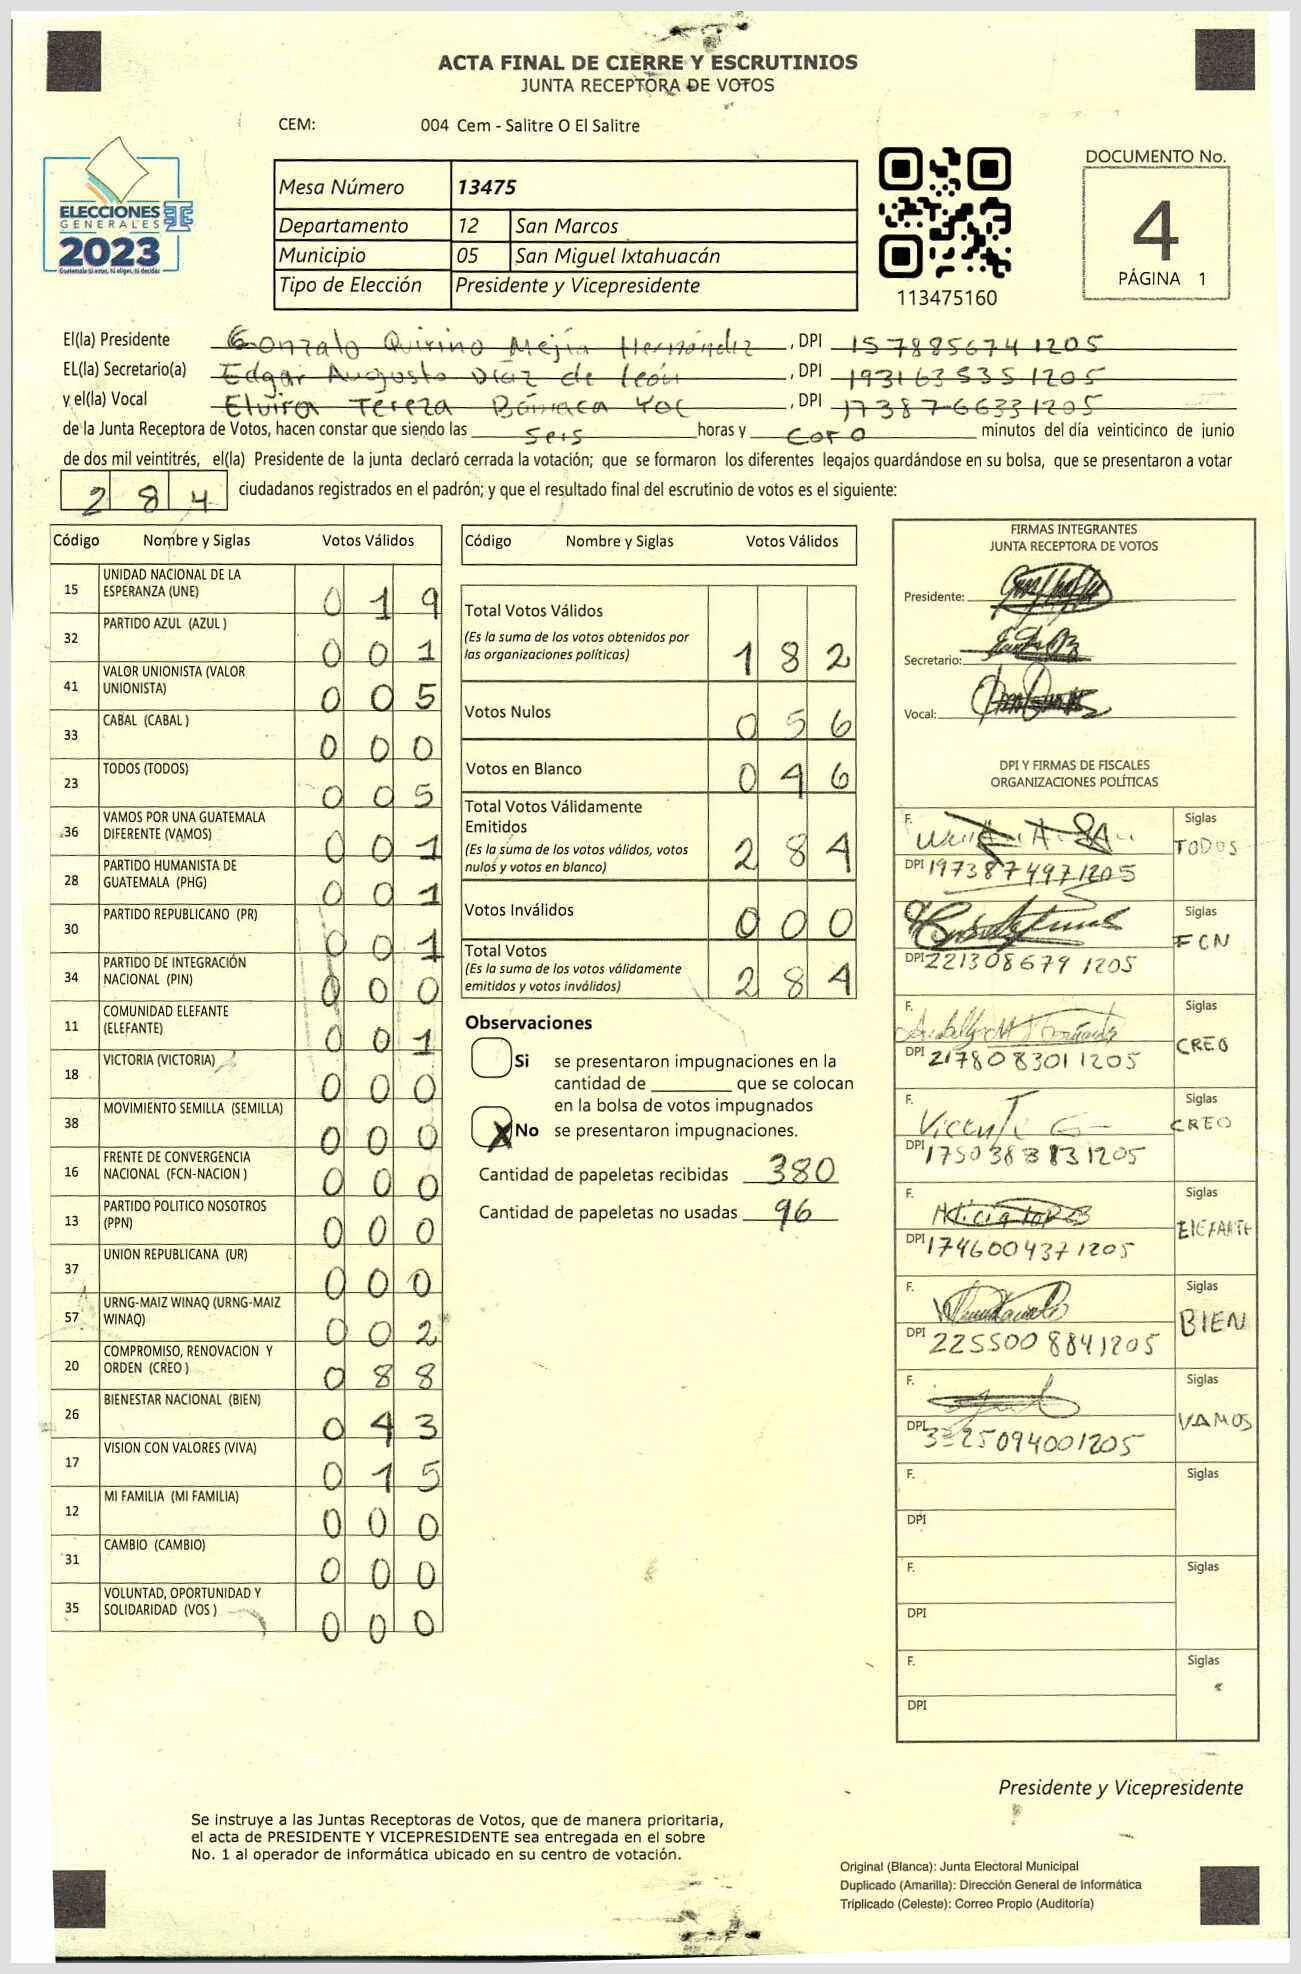 ACTA FINAL DE CIERRE Y ESCRUTINIOS
JUNTA RECEPTORA DE VOTOS
CEM: 004 Cem - Salitre O El Salitre
ELECCIONES
GENERALES
2023
Guatemala tú votas, tú eliges, tú decides
Mesa Número 13475
Departamento 12 San Marcos
Municipio 05 San Miguel Ixtahuacán
Tipo de Elección Presidente y Vicepresidente
113475160
DOCUMENTO No.
4
PÁGINA 1
El(la) Presidente Gonzalo Quirino Mejía Hernández, DPI 157885674 1205
EL(la) Secretario(a) Edgar Augusto Díaz de León, DPI 193163535 1205
y el(la) Vocal Elvira Tereza, DPI 17387-6633 1205
de la Junta Receptora de Votos, hacen constar que siendo las seis horas y cero minutos del día veinticinco de junio
de dos mil veintitrés, el(la) Presidente de la junta declaró cerrada la votación; que se formaron los diferentes legajos guardándose en su bolsa, que se presentaron a votar
284 ciudadanos registrados en el padrón; y que el resultado final del escrutinio de votos es el siguiente:
Código Nombre y Siglas Votos Válidos
15 UNIDAD NACIONAL DE LA ESPERANZA (UNE) 0 1 9
32 PARTIDO AZUL (AZUL ) 0 0 1
41 VALOR UNIONISTA (VALOR UNIONISTA) 0 0 5
33 CABAL (CABAL ) 0 0 0
23 TODOS (TODOS) 0 0 5
36 VAMOS POR UNA GUATEMALA DIFERENTE (VAMOS) 0 0 1
28 PARTIDO HUMANISTA DE GUATEMALA (PHG) 0 0 1
30 PARTIDO REPUBLICANO (PR) 0 0 1
34 PARTIDO DE INTEGRACIÓN NACIONAL (PIN) 0 0 0
11 COMUNIDAD ELEFANTE (ELEFANTE) 0 0 1
18 VICTORIA (VICTORIA) 0 0 0
38 MOVIMIENTO SEMILLA (SEMILLA) 0 0 0
16 FRENTE DE CONVERGENCIA NACIONAL (FCN-NACION ) 0 0 0
13 PARTIDO POLITICO NOSOTROS (PPN) 0 0 0
37 UNION REPUBLICANA (UR) 0 0 0
57 URNG-MAIZ WINAQ (URNG-MAIZ WINAQ) 0 0 2
20 COMPROMISO, RENOVACION Y ORDEN (CREO ) 0 8 8
26 BIENESTAR NACIONAL (BIEN) 0 4 3
17 VISION CON VALORES (VIVA) 0 1 5
12 MI FAMILIA (MI FAMILIA) 0 0 0
31 CAMBIO (CAMBIO) 0 0 0
35 VOLUNTAD, OPORTUNIDAD Y SOLIDARIDAD (VOS ) 0 0 0
Código Nombre y Siglas Votos Válidos
Total Votos Válidos 1 8 2
(Es la suma de los votos obtenidos por
las organizaciones políticas)
Votos Nulos 0 5 6
Votos en Blanco 0 4 6
Total Votos Válidamente
Emitidos 2 8 4
(Es la suma de los votos válidos, votos
nulos y votos en blanco)
Votos Inválidos 0 0 0
Total Votos 2 8 4
(Es la suma de los votos válidamente
emitidos y votos inválidos)
Observaciones
Si se presentaron impugnaciones en la
cantidad de ________ que se colocan
en la bolsa de votos impugnados
X No se presentaron impugnaciones.
Cantidad de papeletas recibidas 380
Cantidad de papeletas no usadas 96
FIRMAS INTEGRANTES
JUNTA RECEPTORA DE VOTOS
Presidente:
Secretario:
Vocal:
DPI Y FIRMAS DE FISCALES
ORGANIZACIONES POLÍTICAS
F. Siglas TODOS
DPI 197387497 1205
F. Siglas FCN
DPI 221308679 1205
F. Siglas CREO
DPI 217808301 1205
F. Vicente G Siglas CREO
DPI 175038383 1205
F. Siglas ElEFANTE
DPI 174600437 1205
F. Siglas BIEN
DPI 225500884 1205
F. Siglas VAMOS
DPI 1205
F. Siglas
DPI
F. Siglas
DPI
F. Siglas
DPI
Presidente y Vicepresidente
Se instruye a las Juntas Receptoras de Votos, que de manera prioritaria,
el acta de PRESIDENTE Y VICEPRESIDENTE sea entregada en el sobre
No. 1 al operador de informática ubicado en su centro de votación.
Original (Blanca): Junta Electoral Municipal
Duplicado (Amarilla): Dirección General de Informática
Triplicado (Celeste): Correo Propio (Auditoría)